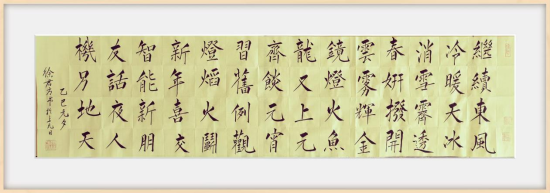 繼續東風
冷暖天冰
消雪霽透
春妍撥開
雲霧輝金
鏡燈火魚
龍又上元
齊餤元宵
習舊例觀
燈熖火鬭
新年喜交
智能新朋
友話夜人
機另地天
乙巳元夕
徐